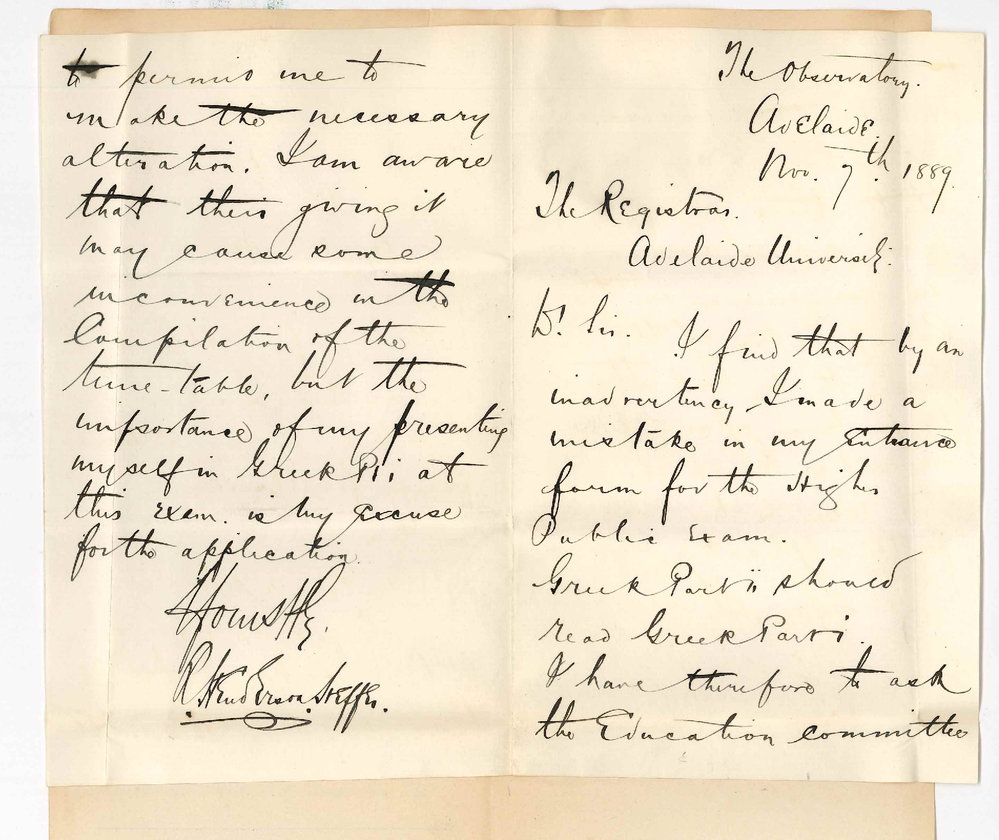 The Observatory.
Adelaide.
Nov. 7th. 1889.
The Registrar.
Adelaide University.
Dr. Sir.
I find that by an
inadvertency I made a
mistake in my entrance
form for the Higher
Public Exam.
Greek Part ii should
read Greek Part i.
I have therefore to ask
the Education committee
to permit me to
make the necessary
alteration. I am aware
that their giving it
may cause some
inconvenience in the
Compilation of the
time-table, but the
importance of my presenting
myself in Greek Pt i at
this exam. is my excuse
for the application.
Yours
R. Henderson